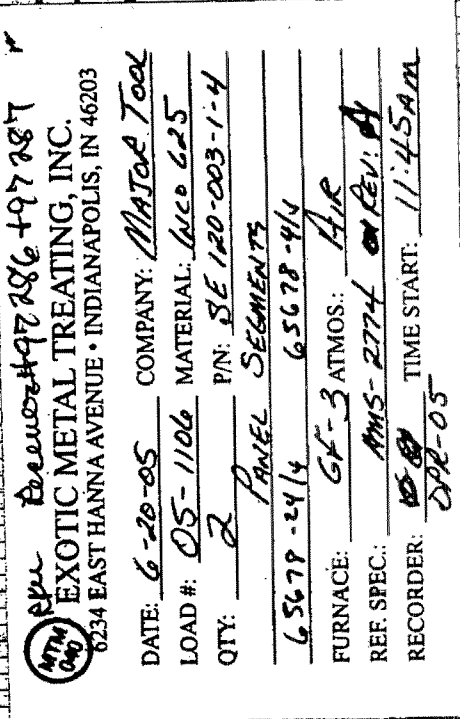 MTM
040
97286 + 97287
EXOTIC METAL TREATING, INC.
6234 EAST HANNA AVENUE • INDIANAPOLIS, IN 46203
DATE: 6-20-05 COMPANY: MAJOR TOOL
LOAD #: 05-1106 MATERIAL: INCO 625
QTY: 2 P/N: SE 120-003-1-4
PANEL SEGMENTS
65678-24/4 65678-4/4
FURNACE: GF-3 ATMOS.: AIR
REF. SPEC.: AMS-2774 REV:
RECORDER: TIME START: 11:45 AM
DPR-05